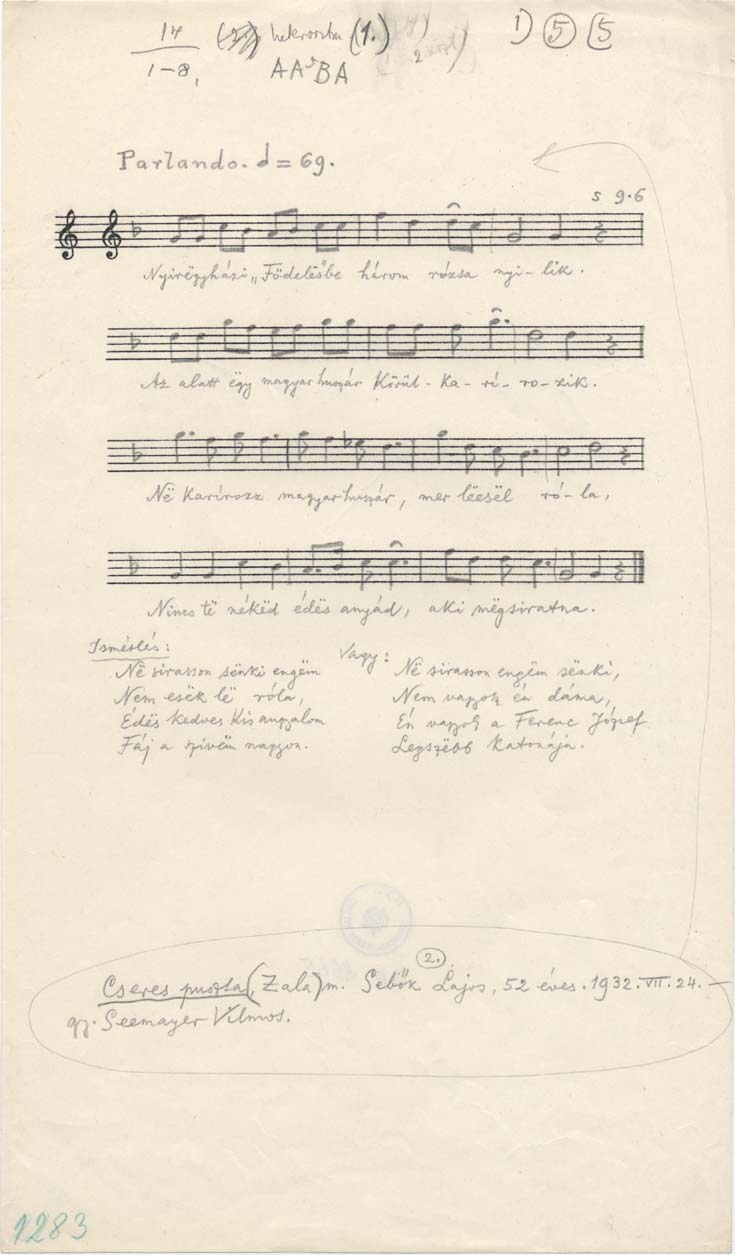 14 (1.) 1) 5 5
1-8,
AA⁵BA
Parlando. = 69.
s 9.6
Nyirëgyházi „Födelës"be három rózsa nyi-lik.
Az alatt ëgy magyar huszár Körül-ka-ri-ro-zik.
Në karírozz magyar huszár, mer lëesël ró-la,
Nincs të nékëd édës anyád, aki mëgsiratna.
Ismétlés: Vagy:
Në sirasson sënki engëm
Nem esëk lë róla,
Édës kedves kis angyalom
Fáj a szivëm nagyon.
Në sirasson engëm sënki,
Nem vagyok én dáma,
Én vagyok a Ferenc József
Legszëbb katonája.
2.
Cseres puszta (Zala) m. Sebők Lajos, 52 éves. 1932. VII. 24. –
gy. Seemayer Vilmos.
1283